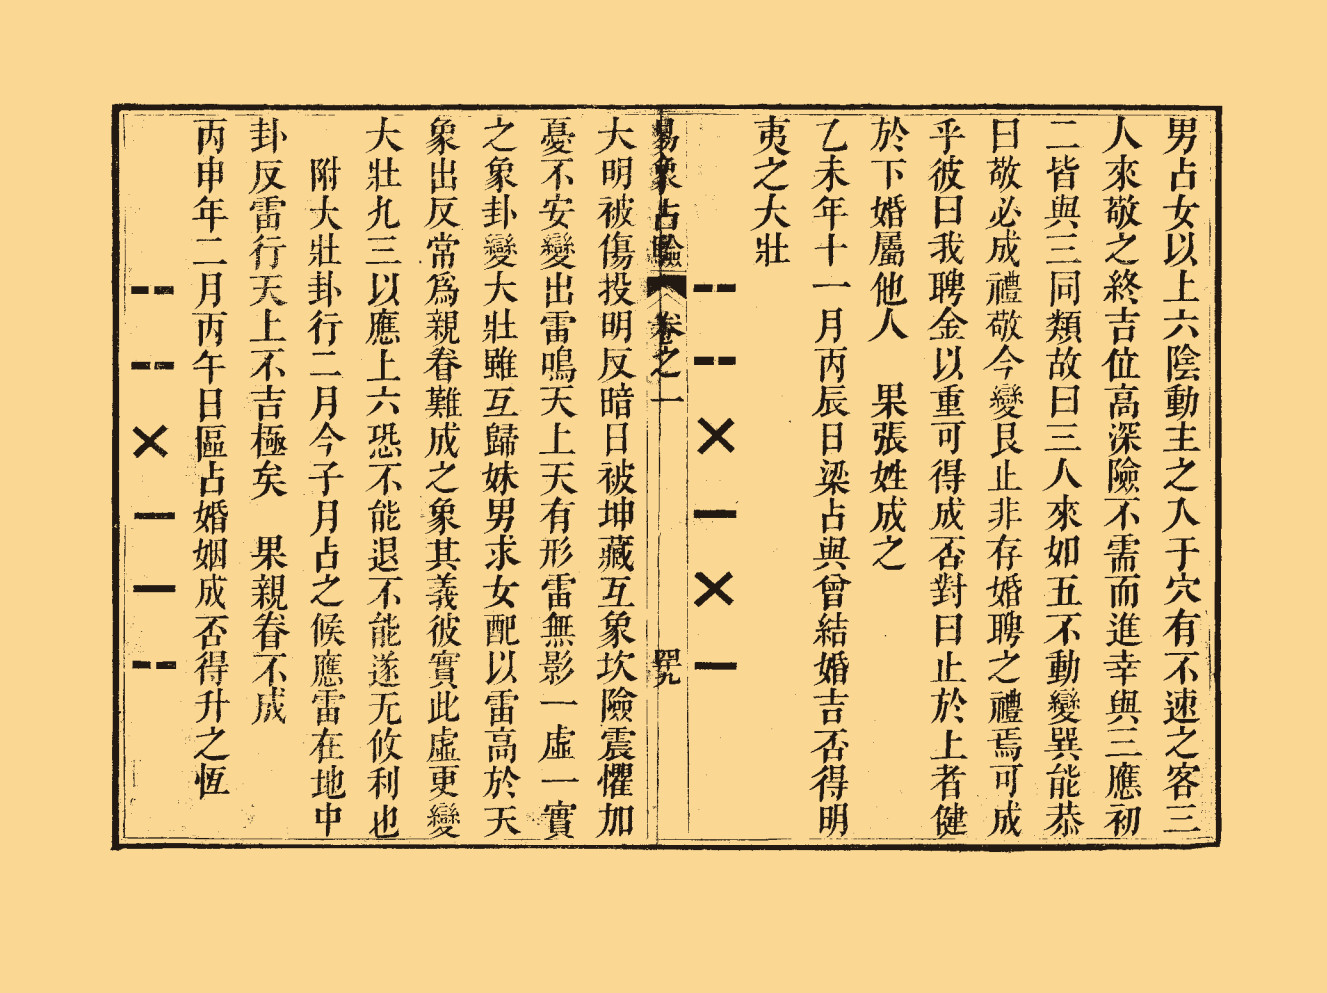 男占女以上六陰動主之入于穴有不速之客三
人來敬之終吉位高深險不需而進幸與三應初
二皆與三同類故曰三人來如五不動變巽能恭
曰敬必成禮敬今變艮止非存婚聘之禮焉可成
乎彼曰我聘金以重可得成否對曰止於上者健
於下婚屬他人　果張姓成之
乙未年十一月丙辰日梁占與曾結婚吉否得明
夷之大壯
易象占驗　卷之一　四九
大明被傷投明反暗日被坤藏互象坎險震懼加
憂不安變出雷鳴天上天有形雷無影一虛一實
之象卦變大壯雖互歸妹男求女配以雷高於天
象出反常爲親眷難成之象其義彼實此虛更變
大壯九三以應上六恐不能退不能遂无攸利也
附大壯卦行二月今子月占之候應雷在地中
卦反雷行天上不吉極矣　果親眷不成
丙申年二月丙午日區占婚姻成否得升之恆